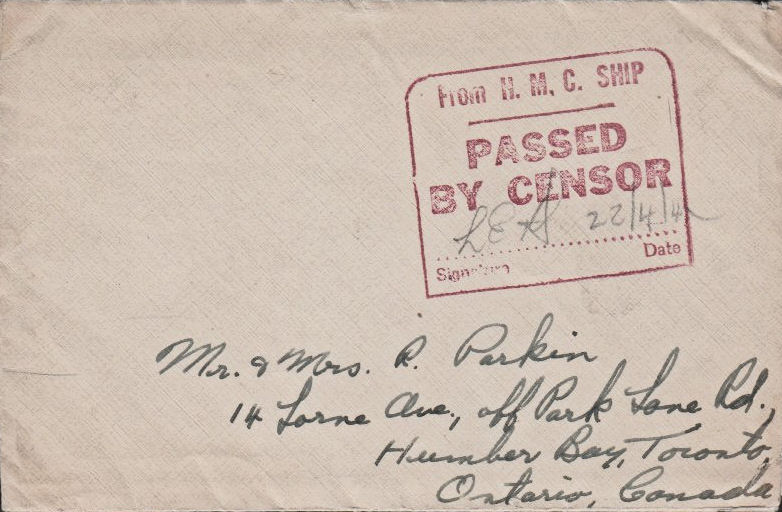 From H. M. C. SHIP
PASSED
BY CENSOR
22/4/42
Signature Date
Mr. & Mrs. R. Parkin
14 Lorne Ave., off Park Lane Rd.,
Humber Bay, Toronto,
Ontario, Canada